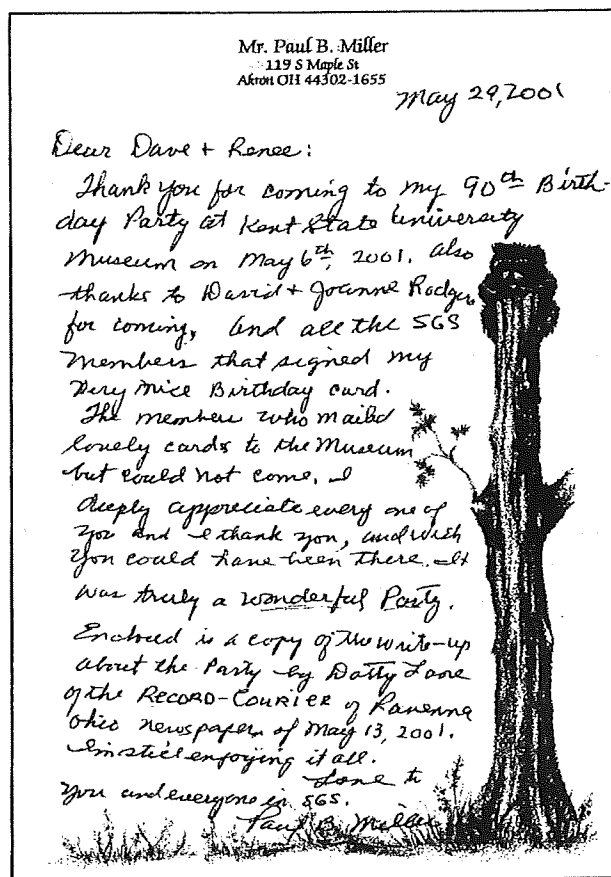 Mr. Paul B. Miller
119 S Maple St
Akron OH 44302-1655
May 29, 2001
Dear Dave + Renee:
Thank you for coming to my 90th Birth-
day Party at Kent State University
Museum on May 6th, 2001. Also
thanks to David + Joanne Rodgers
for coming, and all the SGS
Members that signed my
Very Nice Birthday card.
The members who mailed
lovely cards to the Museum
but could not come, I
deeply appreciate every one of
You and I thank you, and wish
You could have been there. It
was truly a wonderful Party.
Enclosed is a copy of the write-up
about the Party by Dotty
of the RECORD-COURIER of Ravenna
Ohio newspaper of May 13, 2001.
I'm still enjoying it all.
Love to
you and everyone in SGS.
Paul B. Miller